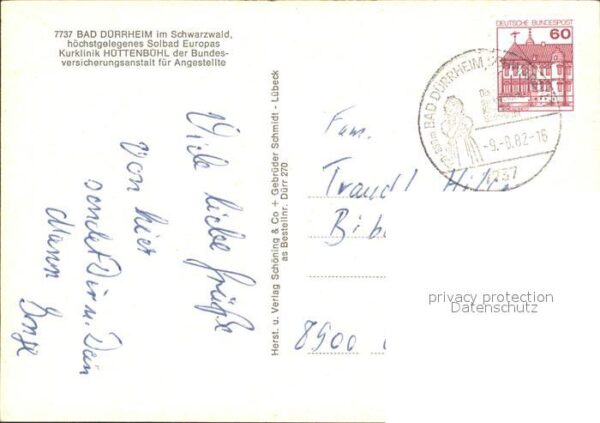 7737 BAD DÜRRHEIM im Schwarzwald,
höchstgelegenes Solbad Europas
Kurklinik HÜTTENBÜHL der Bundes-
versicherungsanstalt für Angestellte
DEUTSCHE BUNDESPOST
60
BAD DÜRRHEIM,
-9.-8.82-16
7737
Viele liebe Grüße
von hier
sendet Dir u. Dein
Mann Inge
Herst. u. Verlag Schöning & Co + Gebrüder Schmidt - Lübeck
as Bestellnr. Dürr 270
Fam.
Traudl
8900
privacy protection
Datenschutz